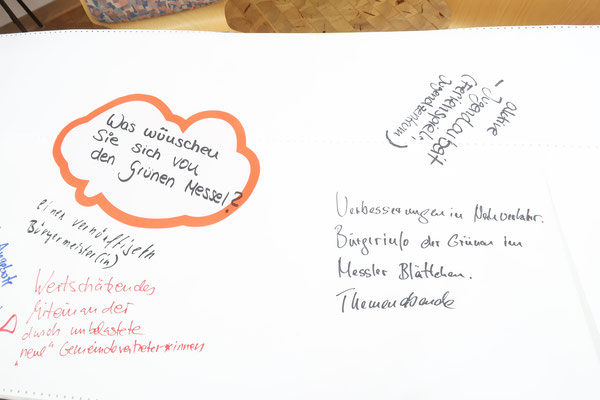 Was wünschen
Sie sich von
den Grünen Messel?
einen vernünftige(n
Bürgermeister(in)
Angebote
Wertschätzendes
Miteinander
durch unbelastete
"neue" Gemeindevertreter*innen
- aktive
Jugendarbeit
(Ferienspiele,
Jugendzentrum)
Verbesserungen im Nahverkehr.
Bürgerinfo der Grünen im
Messler Blättchen.
Themenabende